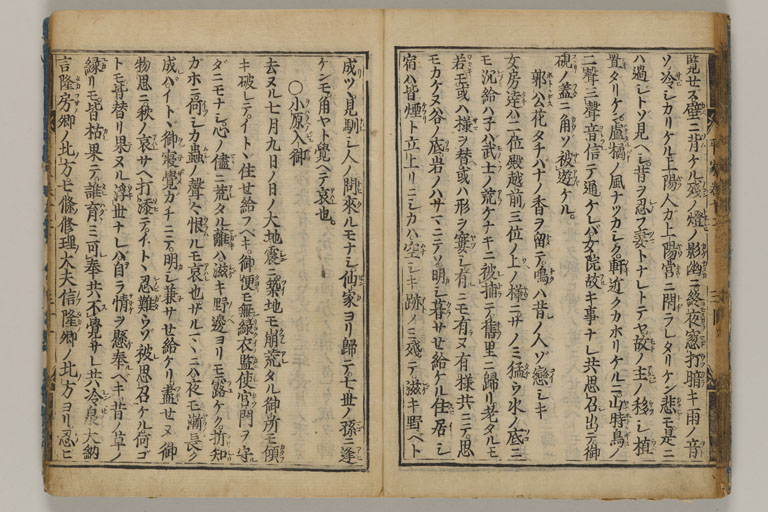 覺世ス壁ニ背ケル殘ノ燈ノ影幽ニ終夜窓打暗キ雨ノ音
ソ冷シカリケル上陽人カ上陽宮ニ閇ラレタリケン悲モ是ニ
ハ過シトソ見ヘシ昔ヲ忍フ妻トナレトテヤ故ノ主ノ移シ植
置タリケン盧橘ノ風ナツカシク軒近クカホリケルニ山時鳥ノ
二聲三聲音信テ通ケレバ女院故キ事ナレ共思召出テ御
硯ノ蓋ニ角ソ被遊ケル
郭公花タチハナノ香ヲ留テ鳴ハ昔ノ人ゾ戀シキ
女房達ハ二位殿越前三位ノ上ノ樣ニサノミ猛ク水ノ底ニ
モ沉給ハ子ハ武士ノ荒ケナキニ被捕テ舊里ニ歸リ老タルモ
若モ或ハ樣ヲ替或ハ形ヲ窶シ有ニモ有ヌ有樣共ニテ思
モカケヌ谷ノ底岩ノハサマニテソ明シ暮サセ給ケル住居シ
宿ハ皆煙ト立上リニシカハ空シキ跡ノミ殘テ滋キ野ベト
成ツヽ見馴シ人ノ問來ルモナシ仙家ヨリ歸テ七世ノ孫ニ逢
ケンモ角ヤト覺ヘテ哀也
〇小原入御
去ヌル七月九日ノ日ノ大地震ニ築地モ崩荒タル御所モ傾
キ破レテイトヽ住セ給フベキ御便モ無緑衣監使宮門ヲ守
ダニモナシ心ノ儘ニ荒タル籬ハ滋キ野邊ヨリモ露ケク折知
ガホニ何シカ蟲ノ聲々恨ルモ哀也サルマヽニハ夜モ漸長ク
成ハイトヽ御寢覺カチニテ明シ兼サセ給ケリ盡セヌ御
物思ニ秋ノ哀サヘ打添テイトヽ忍難クソ被思召ケル何ゴ
トモ皆替リ果ヌル浮世ナレハ自ラ情ヲ懸奉ヘキ昔ノ草ノ
縁リモ皆枯果テ誰育ミ可奉共不覺サレ共冷泉大納
言隆房卿ノ北方七條修理大夫信隆卿ノ北方ヨリ忍ヒ